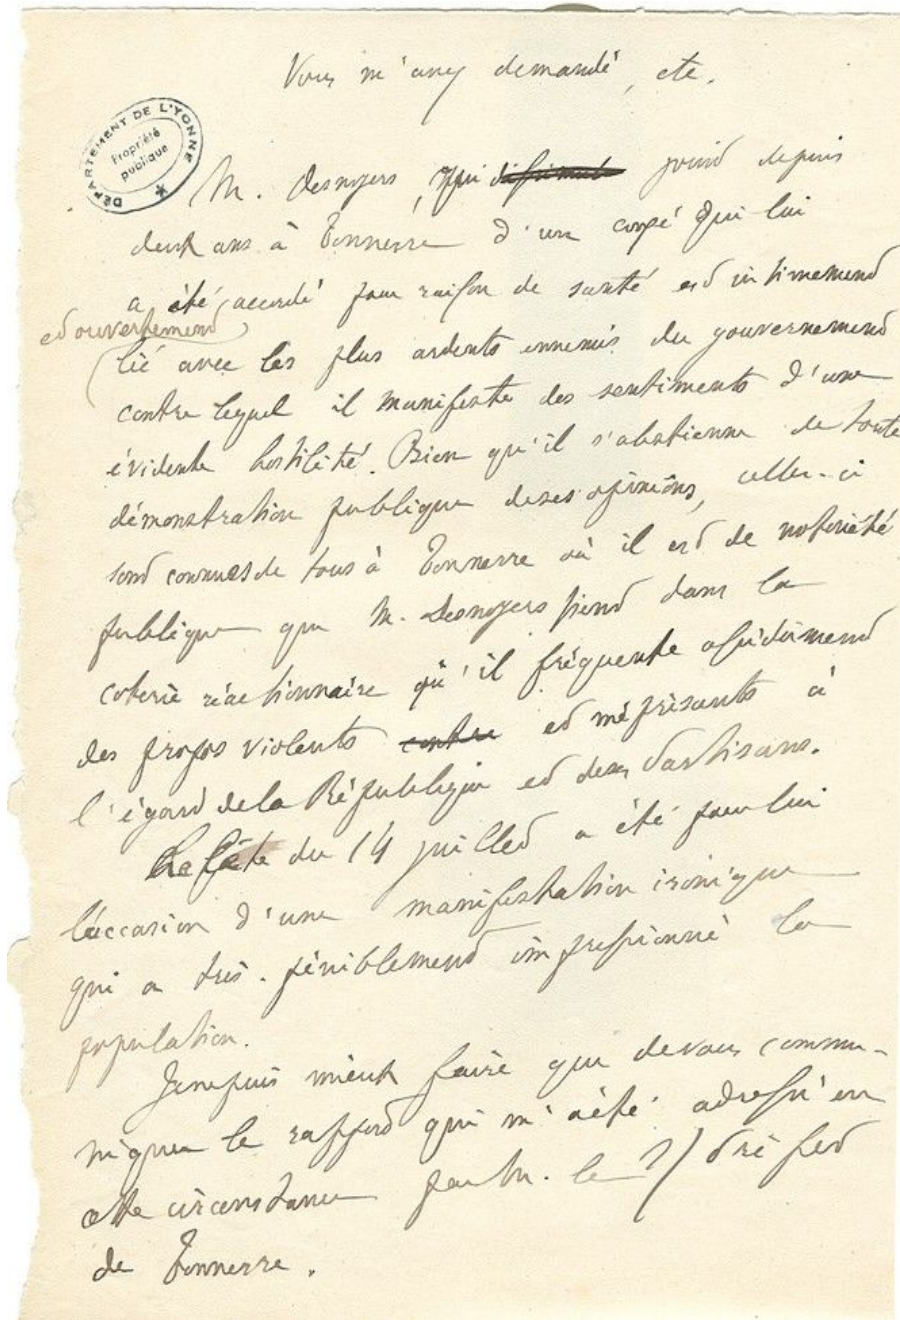 Vous m'avez demandé, etc.
DÉPARTEMENT DE L'YONNE
Propriété
publique
M. Desnoyers, qui jouit depuis
deux ans à Tonnerre d'un congé qui lui
a été accordé pour raison de santé est intimement
et ouvertement
lié avec les plus ardents ennemis du gouvernement
contre lequel il manifeste des sentiments d'une
évidente hostilité. Bien qu'il s'abstienne de toute
démonstration publique de ses opinions, celles-ci
sont connues de tous à Tonnerre où il est de notoriété
publique que M. Desnoyers tient dans la
coterie réactionnaire qu'il fréquente assidûment
des propos violents contre et méprisants à
l'égard de la République et de ses partisans.
La fête du 14 juillet a été pour lui
l'occasion d'une manifestation ironique
qui a très péniblement impressionné la
population.
Je ne puis mieux faire que de vous commu-
niquer le rapport qui m'a été adressé en
cette circonstance par M. le Préfet
de Tonnerre.